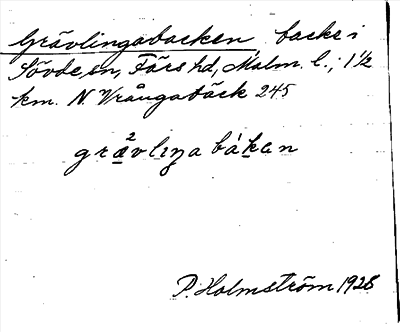 Grävlingabacken, backe i
Sövde sn, Färs hd, Malm. l.; 1 1/2
km. N Vrångabäck 245
græ²vlıŋa bákan
P. Holmström 1928